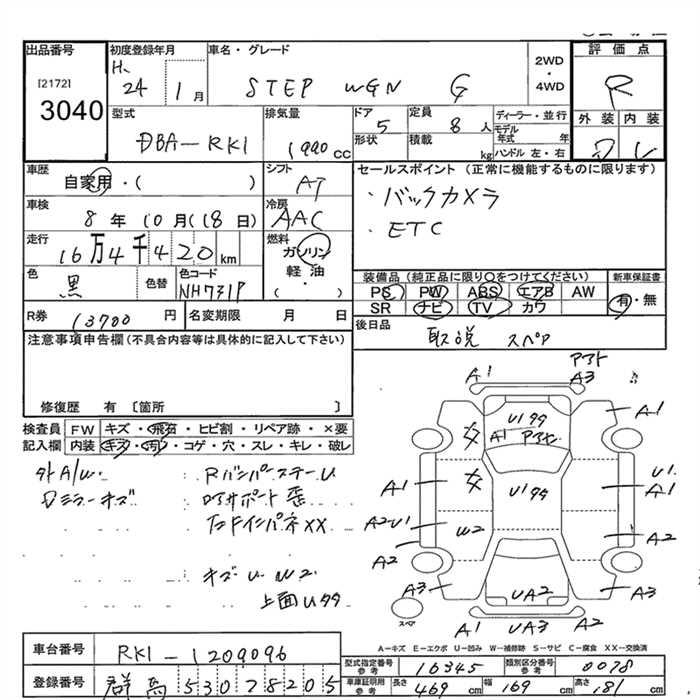 出品番号 初度登録年月 車名・グレード 評価点
[2172] H. 24 1月 STEP WGN G 2WD・4WD R
3040
型式 排気量 ドア 定員 ディーラー・並行 外装 内装
DBA-RK1 1990cc 5 8人 モデル年式 年
形状 積載 kg ハンドル 左・右
車歴 シフト セールスポイント(正常に機能するものに限ります)
自家用・( ) AT ・バックカメラ
車検 冷房 ・ETC
8年10月(18日) AAC
走行 燃料
16万4千420km ガソリン 軽油・( )
色 色替 色コード 装備品(純正品に限り○をつけてください) 新車保証書
黒 NH731P PS PW ABS エアB AW 有・無
SR ナビ TV カワ
R券 13700円 名変期限 月 日 後日品
取説 スペア
注意事項申告欄(不具合内容等は具体的に記入して下さい)
修復歴 有〔箇所 〕
検査員記入欄 FW キズ・飛石・ヒビ割・リペア跡・×要
内装 キズ・汚・コゲ・穴・スレ・キレ・破レ
外A/W. : RバンパーステーU
Dミラーキズ : サポート歪
右ドインパネXX
キズ U W2
上面Uタタ
A1 アフト A3
Uタタ A1 A1
A1 Uタタ U1. A1
A2U1 W2 A2
A2
A3 UA2 A3
スペア A1 UA3 A2
A-キズ E-エクボ U-凹み W-補修跡 S-サビ C-腐食 XX-交換済
車台番号 RK1-1209096 型式指定番号 参考 16345 類別区分番号 参考 0078
登録番号 群馬 530 78205 車庫証明用参考 長さ 469cm 幅 169cm 高さ 181cm